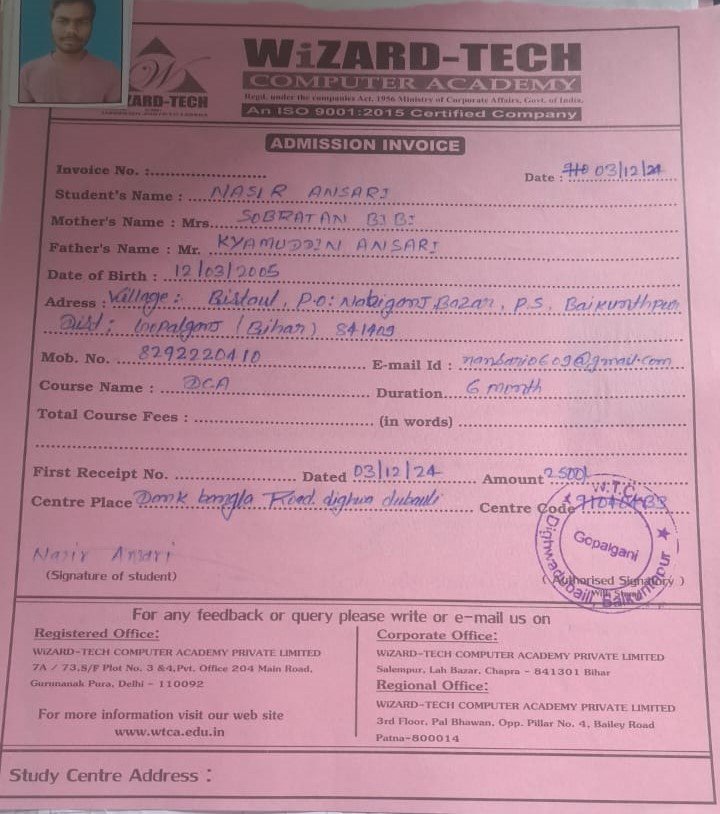 WiZARD-TECH
COMPUTER ACADEMY
Regd. under the companies Act, 1956 Ministry of Corporate Affairs, Govt. of India,
An ISO 9001:2015 Certified Company
ZARD-TECH
ADMISSION INVOICE
Invoice No. :
Date : 03/12/24
Student's Name : NASIR ANSARI
Mother's Name : Mrs. SOBRATAN BIBI
Father's Name : Mr. KYAMUDDIN ANSARI
Date of Birth : 12/03/2005
Adress : Village : P.O: Nabiganj Bazar, P.S. Baikunthpur
Dist : (Bihar) 841409
Mob. No. 8292220410 E-mail Id :
Course Name : DCA Duration 6 month
Total Course Fees : (in words)
First Receipt No. Dated 03/12/24 Amount 2500/-
Centre Place Road dighwa dubauli Centre Code
W.T.C.
Gopalganj
Nasir Ansari
(Signature of student) ( Authorised Signatory )
For any feedback or query please write or e-mail us on
Registered Office:
WiZARD-TECH COMPUTER ACADEMY PRIVATE LIMITED
7A / 73,S/F Plot No. 3 &4,Pvt. Office 204 Main Road,
Gurunanak Pura, Delhi - 110092
For more information visit our web site
www.wtca.edu.in
Corporate Office:
WiZARD-TECH COMPUTER ACADEMY PRIVATE LIMITED
Salempur, Lah Bazar, Chapra - 841301 Bihar
Regional Office:
WiZARD-TECH COMPUTER ACADEMY PRIVATE LIMITED
3rd Floor, Pal Bhawan, Opp. Pillar No. 4, Bailey Road
Patna-800014
Study Centre Address :